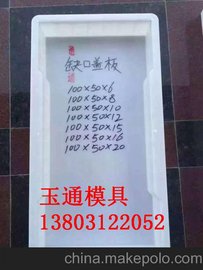 缺口盖板
100×50×6
100×50×8
100×50×10
100×50×12
100×50×15
100×50×16
100×50×20
玉通模具
13803122052
china.makepolo.com